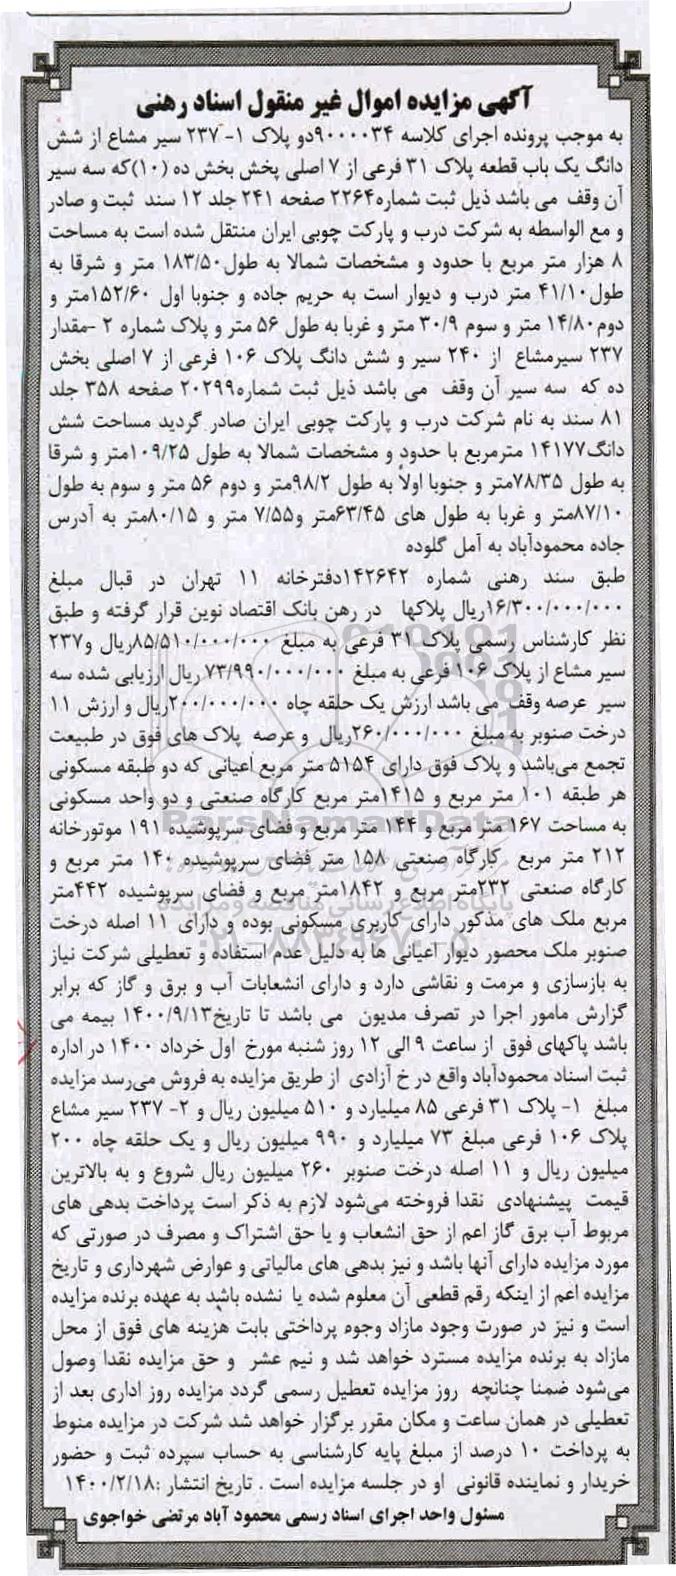 آگهی مزایده اموال غیر منقول اسناد رهنی
به موجب پرونده اجرای کلاسه ۹۰۰۰۰۳۴دو پلاک ۱- ۲۳۷ سیر مشاع از شش
دانگ یک باب قطعه پلاک ۳۱ فرعی از ۷ اصلی پخش بخش ده (۱۰)که سه سیر
آن وقف می باشد ذیل ثبت شماره۲۲۶۴ صفحه ۲۴۱ جلد ۱۲ سند ثبت و صادر
و مع الواسطه به شرکت درب و پارکت چوبی ایران منتقل شده است به مساحت
۸ هزار متر مربع با حدود و مشخصات شمالا به طول۱۸۳/۵۰ متر و شرقا به
طول۴۱/۱۰ متر درب و دیوار است به حریم جاده و جنوبا اول ۱۵۲/۶۰متر و
دوم۱۴/۸۰ متر و سوم ۳۰/۹ متر و غربا به طول ۵۶ متر و پلاک شماره ۲ -مقدار
۲۳۷ سیرمشاع از ۲۴۰ سیر و شش دانگ پلاک ۱۰۶ فرعی از ۷ اصلی بخش
ده که سه سیر آن وقف می باشد ذیل ثبت شماره۲۰۲۹۹ صفحه ۳۵۸ جلد
۸۱ سند به نام شرکت درب و پارکت چوبی ایران صادر گردید مساحت شش
دانگ۱۴۱۷۷ مترمربع با حدود و مشخصات شمالا به طول ۱۰۹/۲۵متر و شرقا
به طول ۷۸/۳۵متر و جنوبا اولاً به طول ۹۸/۲متر و دوم ۵۶ متر و سوم به طول
۸۷/۱۰متر و غربا به طول های ۶۳/۴۵متر و۷/۵۵ متر و ۸۰/۱۵متر به آدرس
جاده محمودآباد به آمل گلوده
طبق سند رهنی شماره ۱۴۲۶۴۲دفترخانه ۱۱ تهران در قبال مبلغ
۱۶/۳۰۰/۰۰۰/۰۰۰ریال پلاکها در رهن بانک اقتصاد نوین قرار گرفته و طبق
نظر کارشناس رسمی پلاک ۳۱ فرعی به مبلغ ۸۵/۵۱۰/۰۰۰/۰۰۰ریال و۲۳۷
سیر مشاع از پلاک ۱۰۶ فرعی به مبلغ ۷۳/۹۹۰/۰۰۰/۰۰۰ ریال ارزیابی شده سه
سیر عرصه وقف می باشد ارزش یک حلقه چاه ۲۰۰/۰۰۰/۰۰۰ریال و ارزش ۱۱
درخت صنوبر به مبلغ ۲۶۰/۰۰۰/۰۰۰ریال و عرصه پلاک های فوق در طبیعت
تجمع می‌باشد و پلاک فوق دارای ۵۱۵۴ متر مربع اعیانی که دو طبقه مسکونی
هر طبقه ۱۰۱ متر مربع و ۱۴۱۵متر مربع کارگاه صنعتی و دو واحد مسکونی
به مساحت ۱۶۷ متر مربع و ۱۴۴ متر مربع و فضای سرپوشیده ۱۹۱ موتورخانه
۲۱۲ متر مربع کارگاه صنعتی ۱۵۸ متر فضای سرپوشیده ۱۴۰ متر مربع و
کارگاه صنعتی ۲۳۲متر مربع و ۱۸۴۲متر مربع و فضای سرپوشیده ۴۴۲متر
مربع ملک های مذکور دارای کاربری مسکونی بوده و دارای ۱۱ اصله درخت
صنوبر ملک محصور دیوار اعیانی ها به دلیل عدم استفاده و تعطیلی شرکت نیاز
به بازسازی و مرمت و نقاشی دارد و دارای انشعابات آب و برق و گاز که برابر
گزارش مامور اجرا در تصرف مدیون می باشد تا تاریخ۱۴۰۰/۹/۱۳ بیمه می
باشد پاکهای فوق از ساعت ۹ الی ۱۲ روز شنبه مورخ اول خرداد ۱۴۰۰ در اداره
ثبت اسناد محمودآباد واقع در خ آزادی از طریق مزایده به فروش می‌رسد مزایده
مبلغ ۱- پلاک ۳۱ فرعی ۸۵ میلیارد و ۵۱۰ میلیون ریال و ۲- ۲۳۷ سیر مشاع
پلاک ۱۰۶ فرعی مبلغ ۷۳ میلیارد و ۹۹۰ میلیون ریال و یک حلقه چاه ۲۰۰
میلیون ریال و ۱۱ اصله درخت صنوبر ۲۶۰ میلیون ریال شروع و به بالاترین
قیمت پیشنهادی نقدا فروخته می‌شود لازم به ذکر است پرداخت بدهی های
مربوط آب برق گاز اعم از حق انشعاب و یا حق اشتراک و مصرف در صورتی که
مورد مزایده دارای آنها باشد و نیز بدهی های مالیاتی و عوارض شهرداری و تاریخ
مزایده اعم از اینکه رقم قطعی آن معلوم شده یا نشده باشد به عهده برنده مزایده
است و نیز در صورت وجود مازاد وجوه پرداختی بابت هزینه های فوق از محل
مازاد به برنده مزایده مسترد خواهد شد و نیم عشر و حق مزایده نقدا وصول
می‌شود ضمنا چنانچه روز مزایده تعطیل رسمی گردد مزایده روز اداری بعد از
تعطیلی در همان ساعت و مکان مقرر برگزار خواهد شد شرکت در مزایده منوط
به پرداخت ۱۰ درصد از مبلغ پایه کارشناسی به حساب سپرده ثبت و حضور
خریدار و نماینده قانونی او در جلسه مزایده است . تاریخ انتشار :۱۴۰۰/۲/۱۸
مسئول واحد اجرای اسناد رسمی محمود آباد مرتضی خواجوی
ParsNamadData
پایگاه اطلاع رسانی مناقصه و مزایده
۰۲۱-۸۸۳۴۹۶۷۰-۵